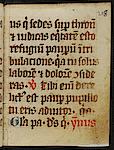 ns q sedes sup thron
et iudicas equitatē esto
refugiuȝ paupuȝ in tri
bulatione qa tu solus
laborē et dolorē ɔside
ras V Tibi em dere
lict est paup pupillo
tu eris adiutor
pa Ds q